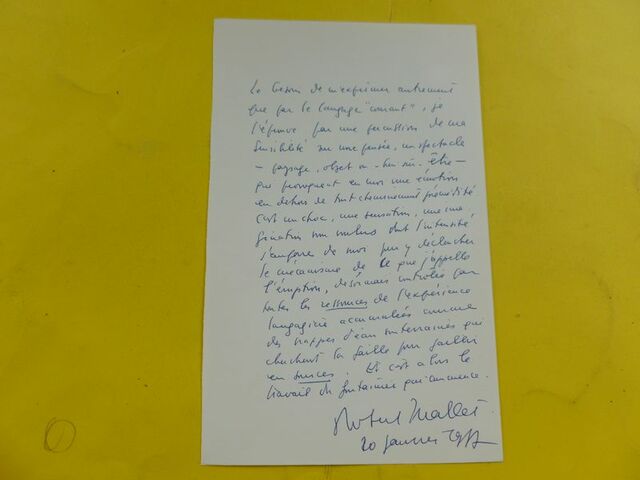 Le besoin de m'exprimer autrement
que par le langage "courant", je
l'éprouve par une percussion de ma
sensibilité sur une pensée, un spectacle
— paysage, objet ou
être —
qui provoquent en moi une émotion
en dehors de tout cheminement prémédité
C'est un choc, une sensation, une
dont l'intensité
s'empare de moi pour y déclencher
le mécanisme de ce que j'appelle
l'éruption, désormais contrôlée par
toutes les ressources de l'expérience
langagière accumulées comme
des nappes d'eau souterraines qui
cherchent la faille pour jaillir
en sources. Et c'est alors le
travail du fontainier qui commence.
Robert Mallet
20 janvier